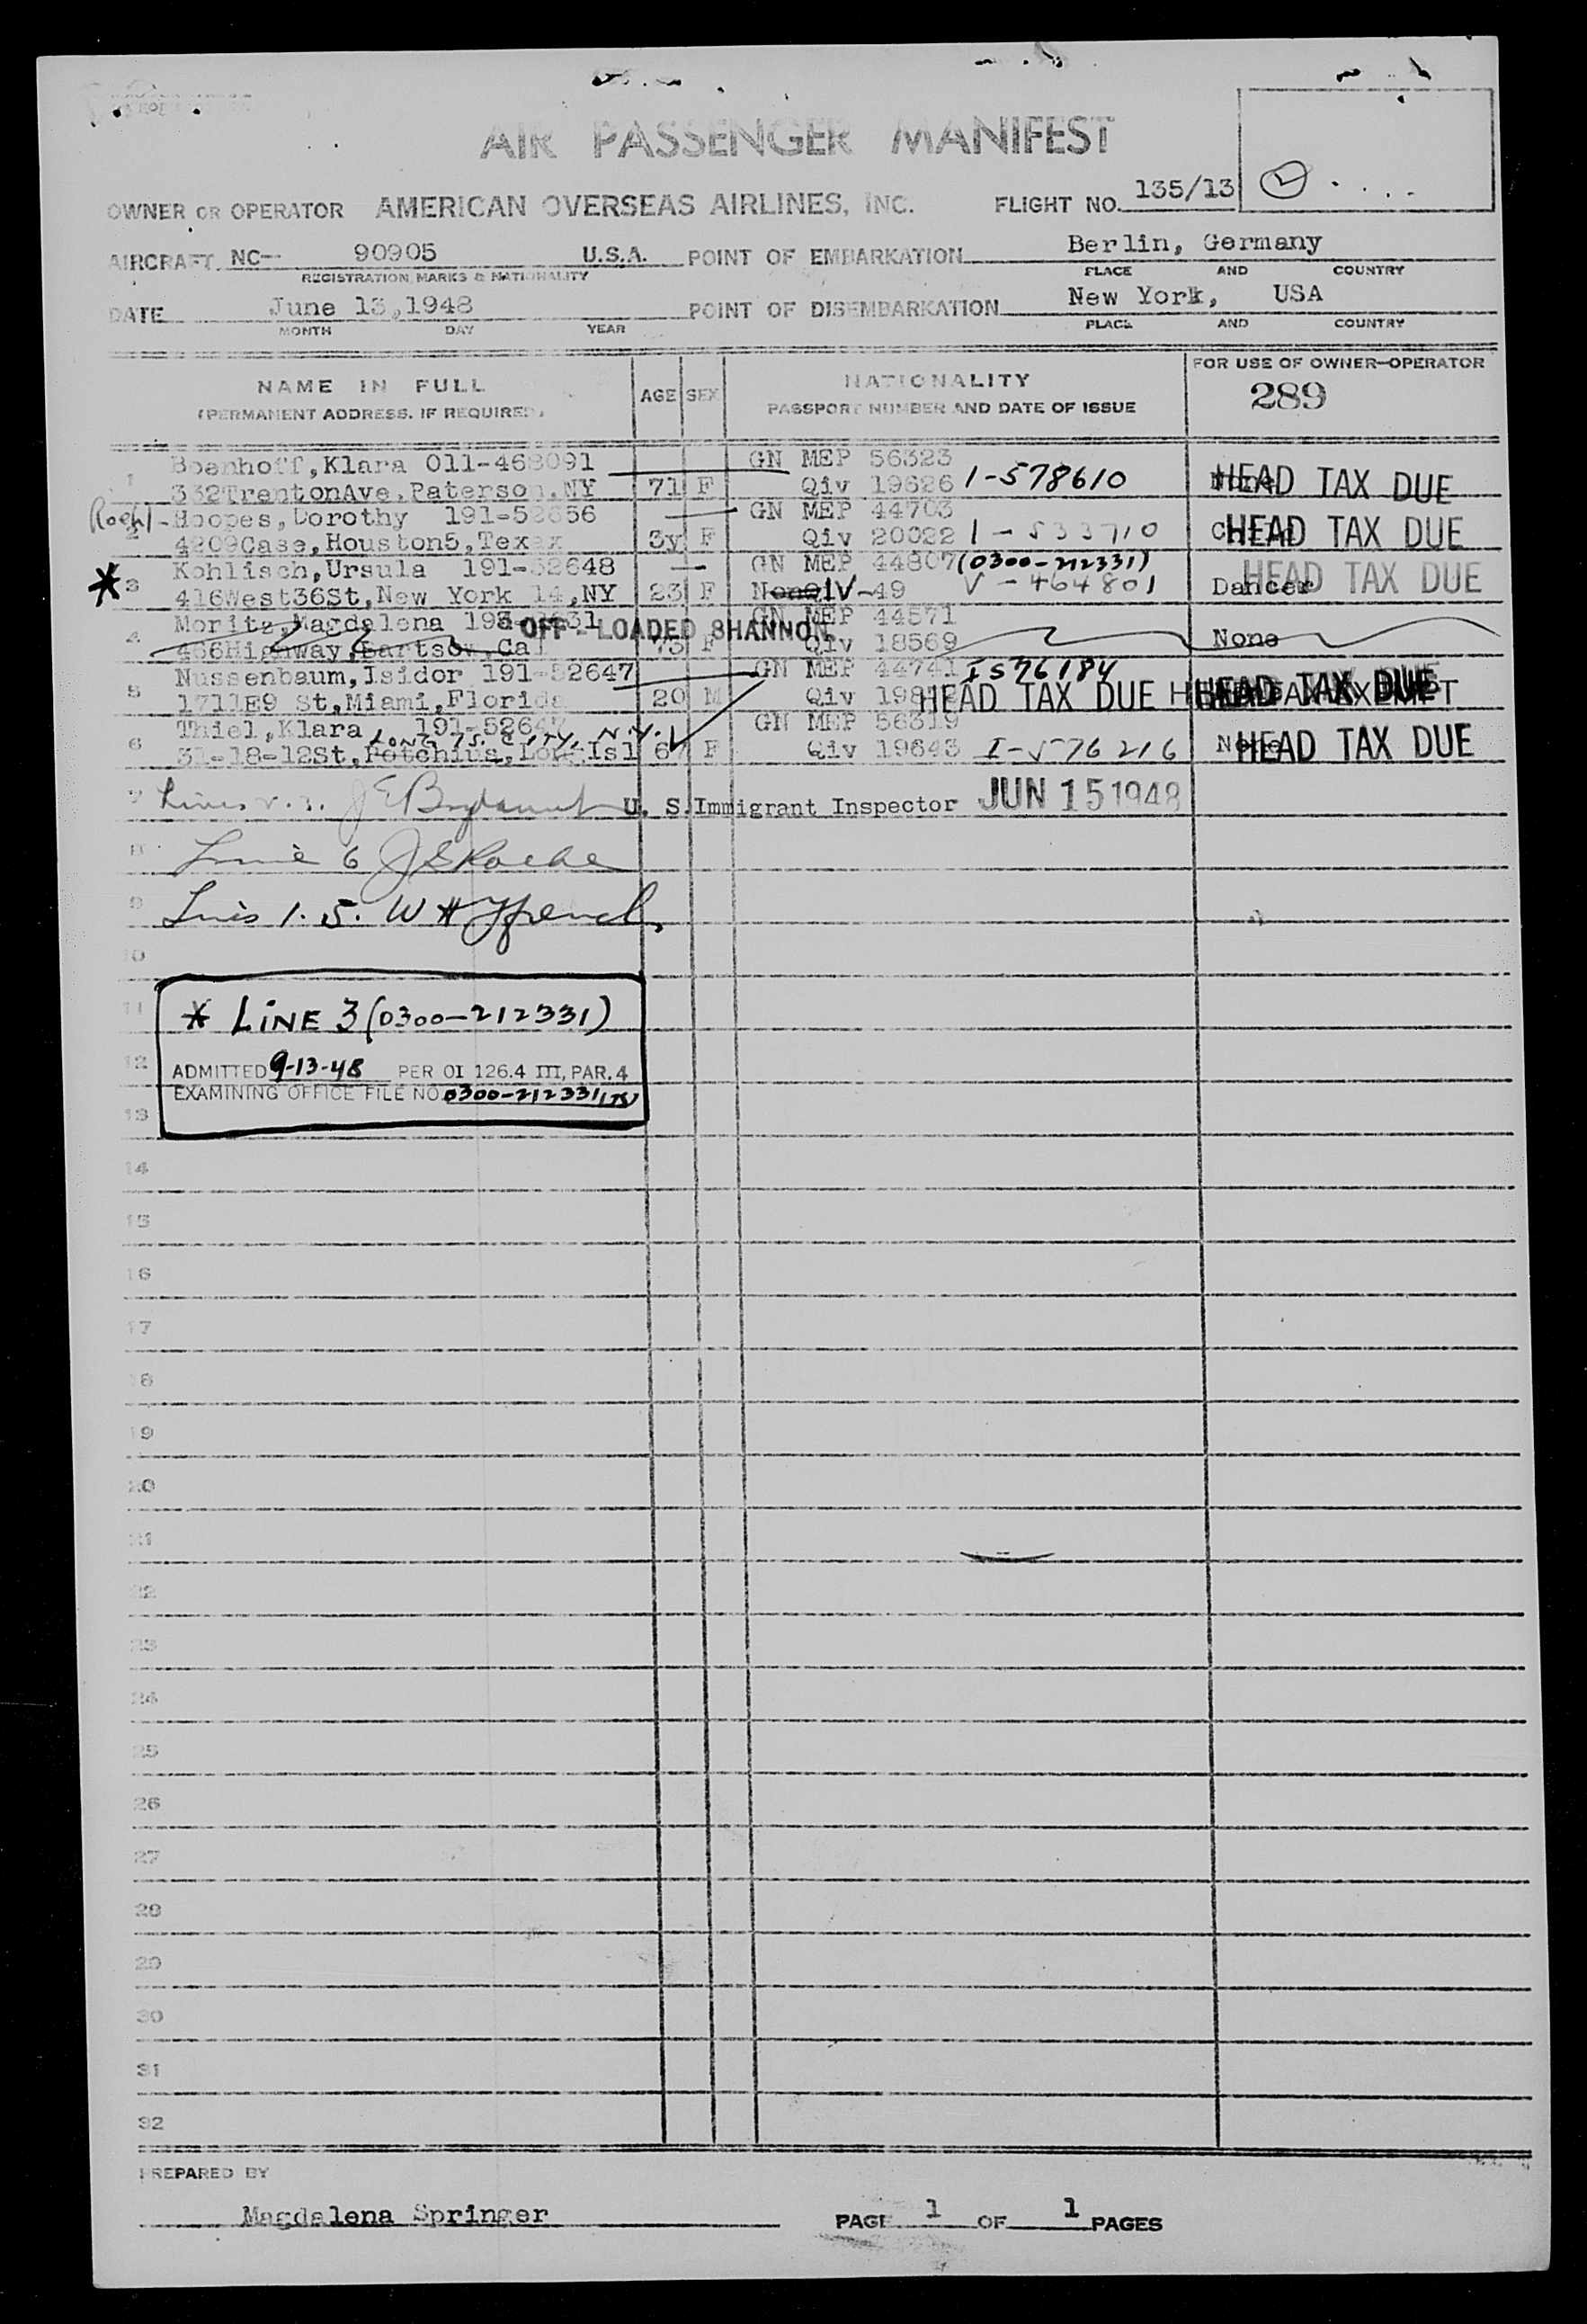 AIR PASSENGER MANIFEST
OWNER OR OPERATOR AMERICAN OVERSEAS AIRLINES, INC. FLIGHT NO. 135/13
AIRCRAFT NC- 90905 U.S.A. POINT OF EMBARKATION Berlin, Germany
REGISTRATION MARKS & NATIONALITY PLACE AND COUNTRY
DATE June 13,1948 POINT OF DISEMBARKATION New York, USA
MONTH DAY YEAR PLACE AND COUNTRY
NAME IN FULL AGE SEX NATIONALITY FOR USE OF OWNER-OPERATOR
(PERMANENT ADDRESS, IF REQUIRED) PASSPORT NUMBER AND DATE OF ISSUE 289
Klara 011-468091 GN MEP 56323
1 332TrentonAve.Paterson,NY 71 F Qiv 19626 1-578610 HEAD TAX DUE
Hoopes,Dorothy 191-52656 GN MEP 44703
2 4209Case,Houston5,Tex 3y F Qiv 20022 1-533710 HEAD TAX DUE
Kohlisch,Ursula 191-52648 GN MEP 44807 (0300-212331)
* 3 416West36St,New York 14,NY 23 F None QIV-49 V-464801 Dancer HEAD TAX DUE
Moritz,Magdalena OFF-LOADED SHANNON GN MEP 44571
4 466Highway,Bartsow,Cal 73 F Qiv 18569 None
Nussenbaum,Isidor 191-52647 GN MEP 44741 I576184
5 1711E9 St,Miami,Florida 20 M Qiv HEAD TAX DUE HEAD TAX DUE
Thiel,Klara 191-52647 GN MEP 56319
LONG IS. CITY, N.Y.
6 31-18-12St, Long Isl 67 F Qiv 19643 I-576216 None HEAD TAX DUE
7 U. S.Immigrant Inspector JUN 15 1948
8 Line 6
9 Lines 1. 5. W H French
10
11 * LINE 3 (0300-212331)
12 ADMITTED 9-13-48 PER OI 126.4 III, PAR. 4
EXAMINING OFFICE FILE NO. 0300-212331
13
14
15
16
17
18
19
20
21
22
23
24
25
26
27
28
29
30
31
32
PREPARED BY
Magdalena Springer PAGE 1 OF 1 PAGES